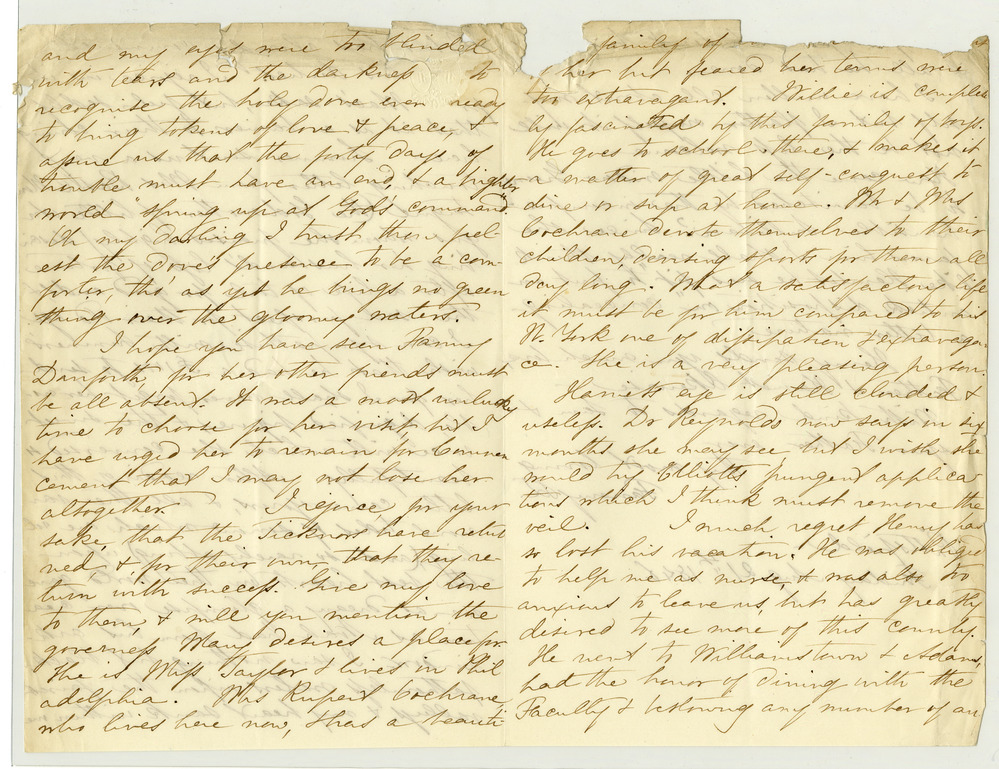 and my eyes were too blinded
with tears and the darkness to
recognise the holy dove even ready
to bring tokens of love & peace, &
assure us that the forty days of
trouble must have an end, & a brighter
world "spring up at God's command."
Oh my darling I trust thou feel-
est the dove's presence to be a com-
forter, tho' as yet he brings no green
thing over the gloomy waters.
I hope you have seen Fanny
Danforth, for her other friends must
be all absent. It was a most unlucky
time to choose for her visit, but I
have urged her to remain for Commen
cement that I may not lose her
altogether. I rejoice for your
sake, that the Ticknors have retur
ned, & for their own, that they re-
turn with success. Give my love
to them, & will you mention the
governess Mary desires a place for.
She is Miss Taylor & lives in Phil
adelphia. Mrs Rupert Cochrane,
who lives here now, & has a beauti
family of
her but feared her terms were
too extravagant. Willie is complete
ly fascinated by this family of boys.
He goes to school there, & makes it
a matter of great self-conquest to
dine or sup at home. Mr & Mrs
Cochrane devote themselves to their
children, devising sports for them all
day long. What a satisfactory life
it must be for him compared to his
N. York one of dissipation & extravagan
ce. She is a very pleasing person.
Harriet's eye is still clouded &
useless. Dr Reynolds now says in six
months she may see but I wish she
would try Elliott's pungent applica
tions which I think must remove the
veil. I much regret Henry has
so lost his vacation. He was obliged
to help me as nurse, & was also too
anxious to leave us, but has greatly
desired to see more of this county.
He went to Williamstown & Adams,
had the honor of dining with the
Faculty & bestowing any number of au